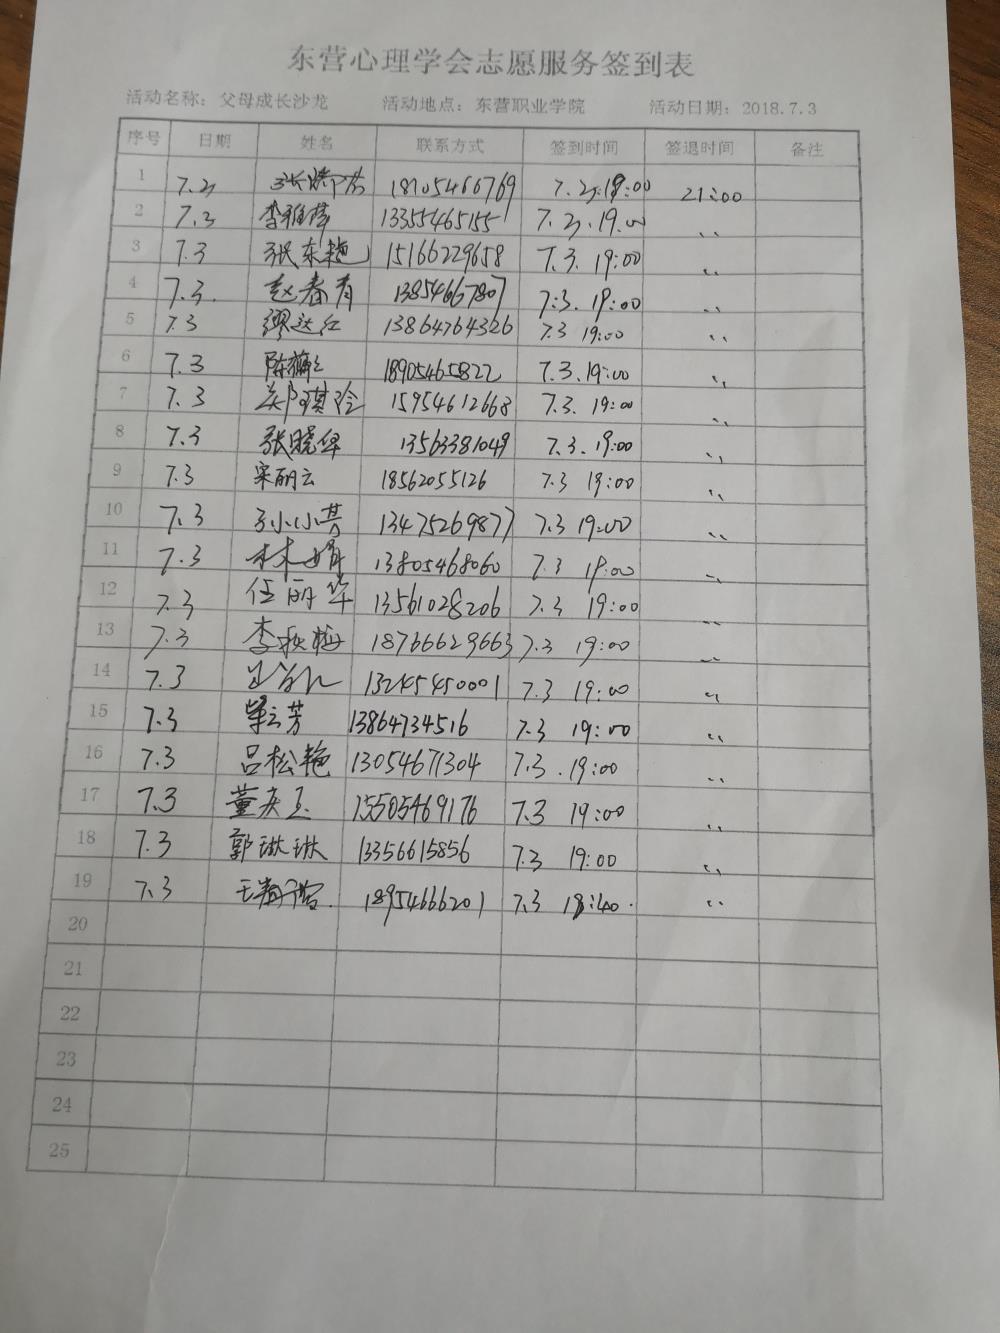 东营心理学会志愿服务签到表
活动名称：父母成长沙龙 活动地点：东营职业学院 活动日期：2018.7.3
序号 日期 姓名 联系方式 签到时间 签退时间 备注
1 7.3 18705466769 7.3.19:00 21:00
2 7.3 李雅萍 13355465155 7.3.19.00 、、
3 7.3 张东艳 15166229658 7.3.19:00 、、
4 7.3. 赵春育 13854667807 7:3.19:00 、、
5 7.3 缪达红 13864764326 7.3 19:00 、、
6 7.3 18905465822 7.3.19:00 、、
7 7.3 15954612668 7.3.19:00 、、
8 7.3 张晓华 13563381049 7.3.19:00 、、
9 7.3 宋丽云 18562055126 7.3 19:00 、、
10 7.3 孙小小芳 13475269877 7.3 19:00 、、
11 7.3 林娟 13805468060 7.3 19:00 、、
12 7.3 任丽华 13561028206 7.3 19:00 、、
13 7.3 李秋梅 18766629663 7.3 19:00 、、
14 7.3 13245450001 7.3 19:00 、、
15 7.3 13864734516 7.3 19:00 、、
16 7.3 吕松艳 13054671304 7.3.19:00 、、
17 7.3 董英玉 15505469176 7.3 19:00 、、
18 7.3 郭琳琳 13356615856 7.3 19:00 、、
19 7.3 18954666201 7.3 18:40. 、、
20
21
22
23
24
25